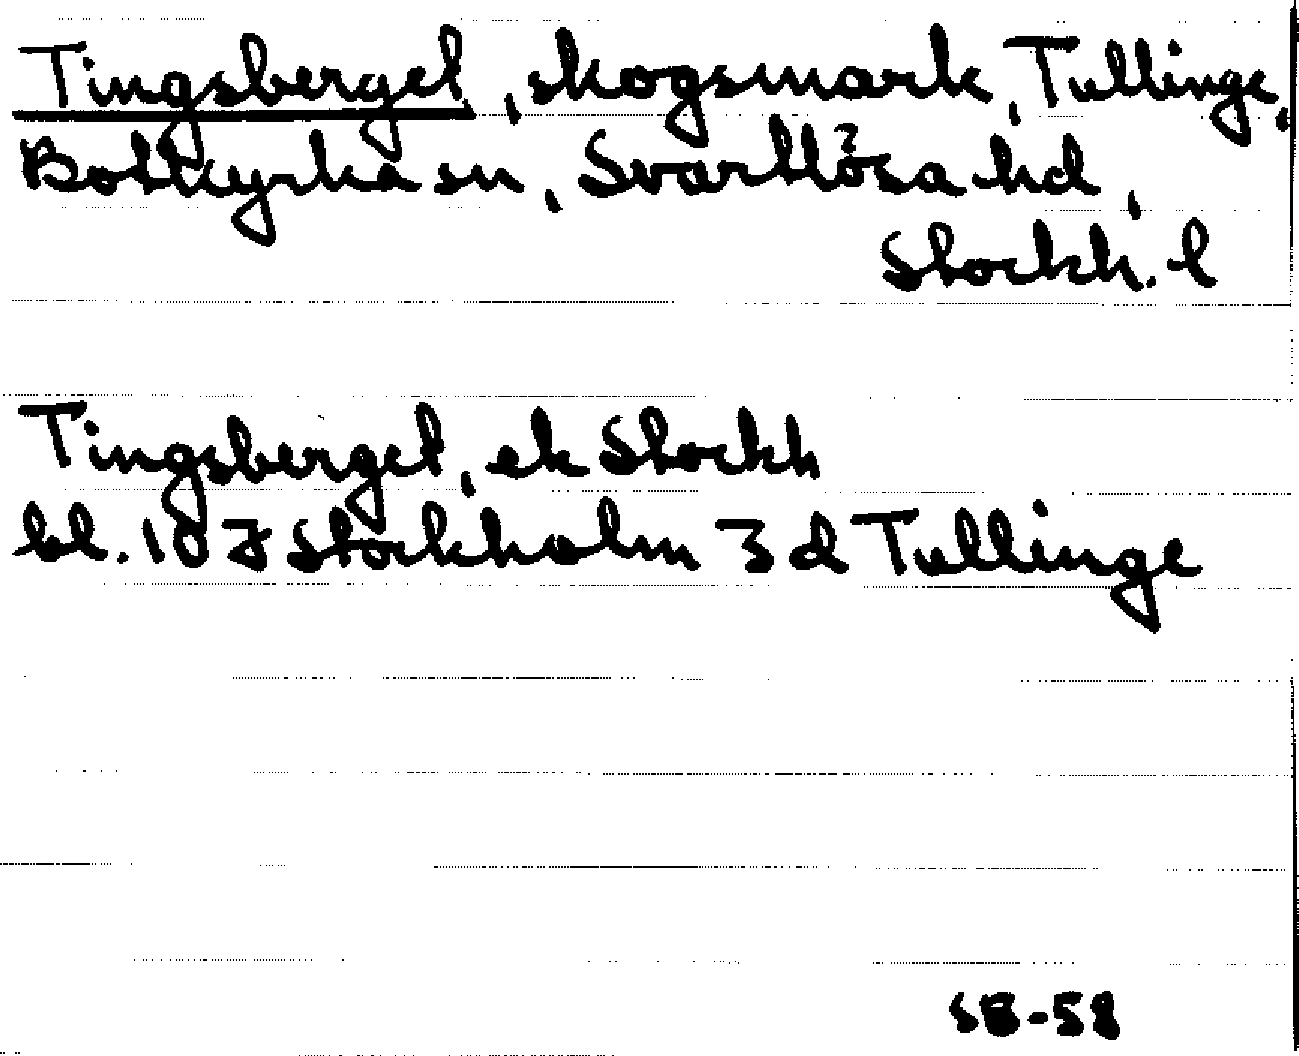 Tingsberget, skogsmark, Tullinge,
Botkyrka sn, Svartlösa hd,
Stockh. l
Tingsberget, ek Stockh
bl. 107 Stockholm 3d Tullinge
SB-58